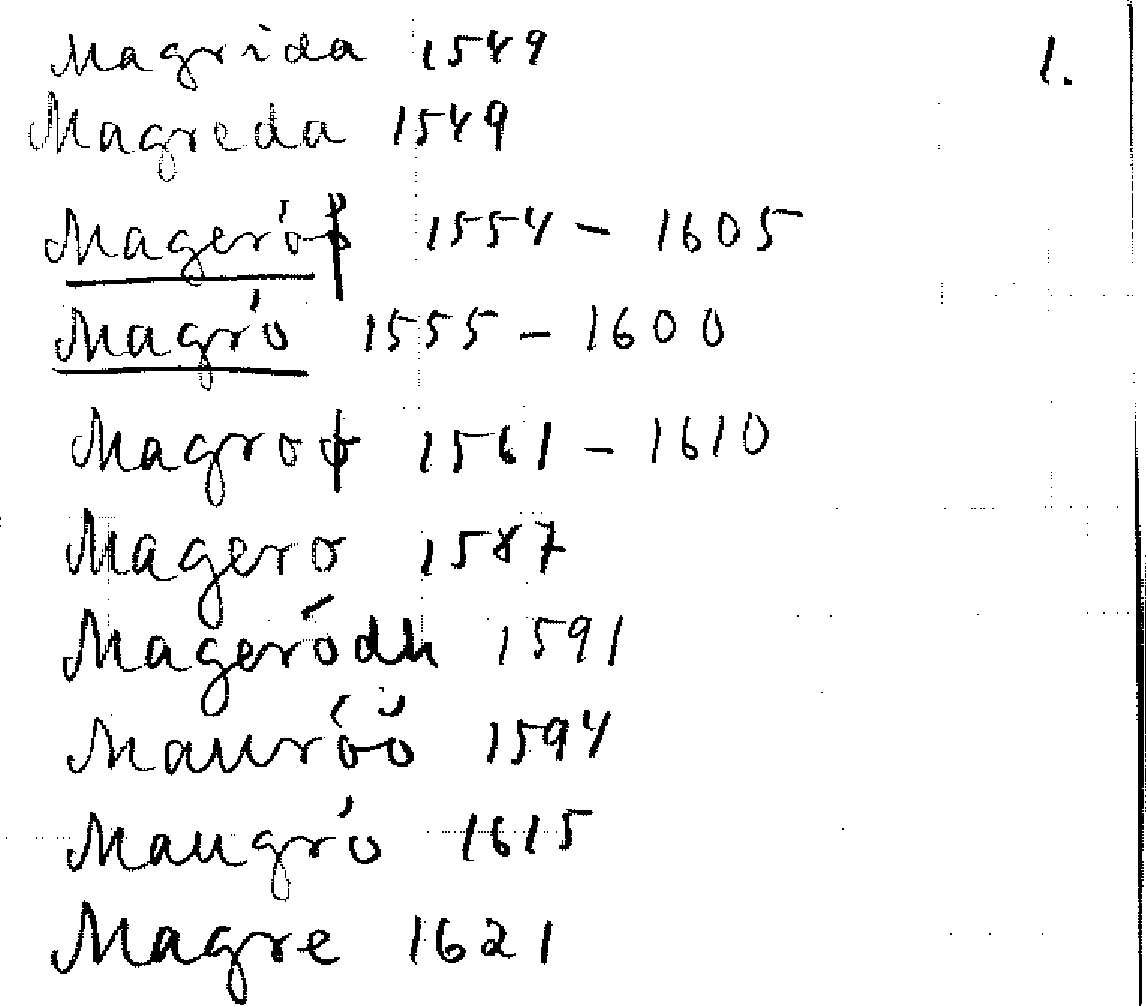 Magrida 1549 1.
Magreda 1549
Mageróø 1554 - 1605
Magró 1555 - 1600
Magroø 1561 - 1610
Magero 1587
Mageródh 1591
Mauróö 1594
Maugró 1615
Magre 1621